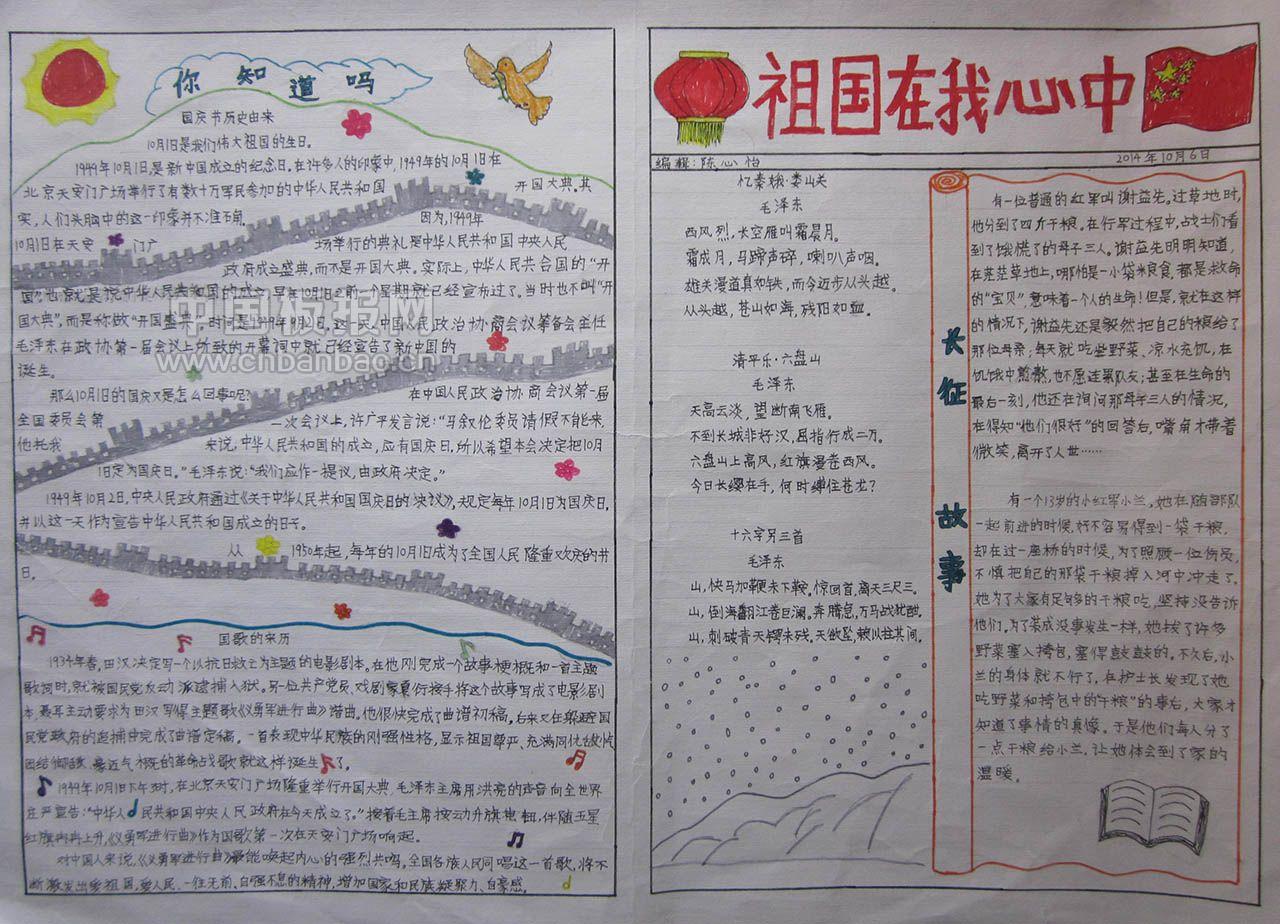 你知道吗
国庆节历史由来
10月1日是我们伟大祖国的生日。
1949年10月1日,是新中国成立的纪念日。在许多人的印象中,1949年的10月1日在
北京天安门广场举行了有数十万军民参加的中华人民共和国 开国大典。其
实,人们头脑中的这一印象并不准确。 因为,1949年
10月1日在天安 门广 场举行的典礼是中华人民共和国中央人民
政府成立盛典,而不是开国大典。实际上,中华人民共合国的“开
国”,也就是说中华人民共和国的成立,早在10月1日之前一个星期就已经宣布过了。当时也不叫“开
国大典”,而是称做“开国盛典”。时间是1949年9月21日。这一天,中国人民政治协商会议筹备会主任
毛泽东在政协第一届会议上所致的开幕词中就已经宣告了新中国的
诞生。
那么10月1日的国庆又是怎么回事呢? 在中国人民政治协商会议第一届
全国委员会第 一次会议上,许广平发言说:“马叙伦委员请假不能来,
他托我 来说,中华人民共和国的成立,应有国庆日,所以希望本会决定把10月
1日定为国庆日。”毛泽东说:“我们应作一提议,由政府决定。”
1949年10月2日,中央人民政府通过《关于中华人民共和国国庆日的决议》,规定每年10月1日为国庆日,
并以这一天作为宣告中华人民共和国成立的日子。
从 1950年起,每年的10月1日成为了全国人民隆重欢庆的节
日。
国歌的来历
1934年春,田汉决定写一个以抗日救亡为主题的电影剧本。在他刚完成一个故事梗概和一首主题
歌词时,就被国民党反动派逮捕入狱。另一位共产党员、戏剧家夏衍接手将这个故事写成了电影剧
本,聂耳主动要求为田汉写得主题歌《义勇军进行曲》谱曲。他很快完成了曲谱初稿,后来又在躲避国
民党政府的追捕中完成了曲谱定稿,一首表现中华民族的刚强性格,显示祖国尊严,充满同仇敌忾
团结御敌豪迈气概的革命战歌就这样诞生了。
1949年10月1日下午3时,在北京天安门广场隆重举行开国大典,毛泽东主席用洪亮的声音向全世界
庄严宣告:“中华人民共和国中央人民政府在今天成立了。”接着毛主席按动升旗电钮,伴随五星
红旗冉冉上升,《义勇军进行曲》作为国歌第一次在天安门广场响起。
对中国人来说,《义勇军进行曲》最能唤起内心的强烈共鸣,全国各族人民同唱这一首歌,将不
断激发出爱祖国,爱人民,一往无前,自强不息的精神,增加国家和民族凝聚力、自豪感。
祖国在我心中
编辑:陈心怡 2014年10月6日
忆秦娥·娄山关
毛泽东
西风烈,长空雁叫霜晨月。
霜成月,马蹄声碎,喇叭声咽。
雄关漫道真如铁,而今迈步从头越。
从头越,苍山如海,残阳如血。
清平乐·六盘山
毛泽东
天高云淡,望断南飞雁。
不到长城非好汉,屈指行成二万。
六盘山上高风,红旗漫卷西风。
今日长缨在手,何时缚住苍龙?
十六字另三首
毛泽东
山,快马加鞭未下鞍。惊回首,离天三尺三。
山,倒海翻江卷巨澜。奔腾急,万马战犹酣。
山,刺破青天锷未残。天欲坠,赖以拄其间。
长征故事
有一位普通的红军叫谢益先。过草地时,
他分到了四斤干粮。在行军过程中,战士们看
到了饿慌了的母子三人。谢益先明明知道,
在茫茫草地上,哪怕是一小袋米食,都是救命
的“宝贝”,意味着一个人的生命!但是,就在这样
的情况下,谢益先还是毅然把自己的粮给了
那位母亲;每天就吃些野菜、凉水充饥,在
饥饿中煎熬,也不愿连累队友;甚至在生命的
最后一刻,他还在询问那母子三人的情况,
在得知“他们很好”的回答后,嘴角才带着
微笑,离开了人世……
有一个13岁的小红军小兰,她在随部队
一起前进的时候,好不容易得到一袋干粮,
却在过一座桥的时候,为了照顾一位伤员,
不慎把自己的那袋干粮掉入河中冲走了。
她为了大家有足够的干粮吃,坚持没告诉
他们。为了装成没事发生一样,她拔了许多
野菜塞入挎包,塞得鼓鼓的。不久后,小
兰的身体就不行了,在护士长发现了她
吃野菜和挎包中的“干粮”的事后,大家才
知道了事情的真像。于是他们每人分了
一点干粮给小兰,让她体会到了家的
温暖。
中国板报网
www.chbanbao.cn